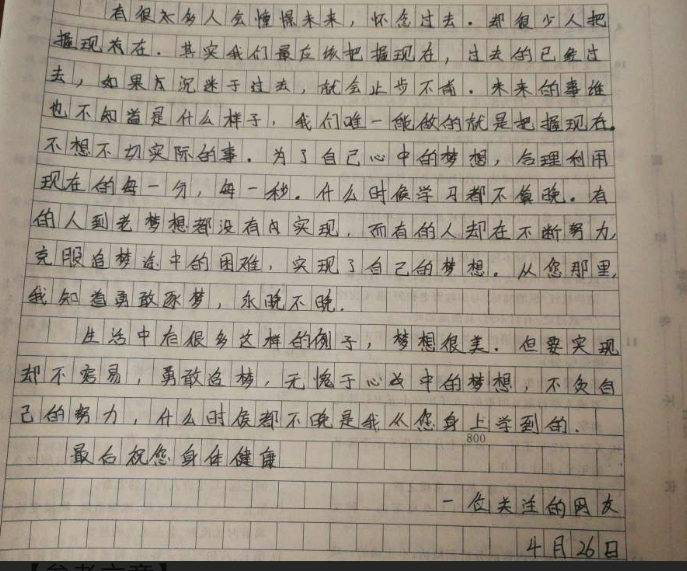 有很太多人会憧憬未来，怀念过去。却很少人把
握现在。其实我们最应该把握现在，过去的已经过
去，如果沉迷于过去，就会止步不前。未来的事谁
也不知道是什么样子，我们唯一能做的就是把握现在。
不想不切实际的事。为了自己心中的梦想，合理利用
现在的每一分，每一秒。什么时候学习都不算晚。有
的人到老梦想都没有实现，而有的人却在不断努力，
克服追梦途中的困难，实现了自己的梦想。从您那里，
我知道勇敢逐梦，永晚不晚。
生活中有很多这样的例子，梦想很美。但要实现
却不容易，勇敢追梦，无愧于心中的梦想，不负自
己的努力，什么时候都不晚是我从您身上学到的。
800
最后祝您身体健康
一位关注的网友
4月26日